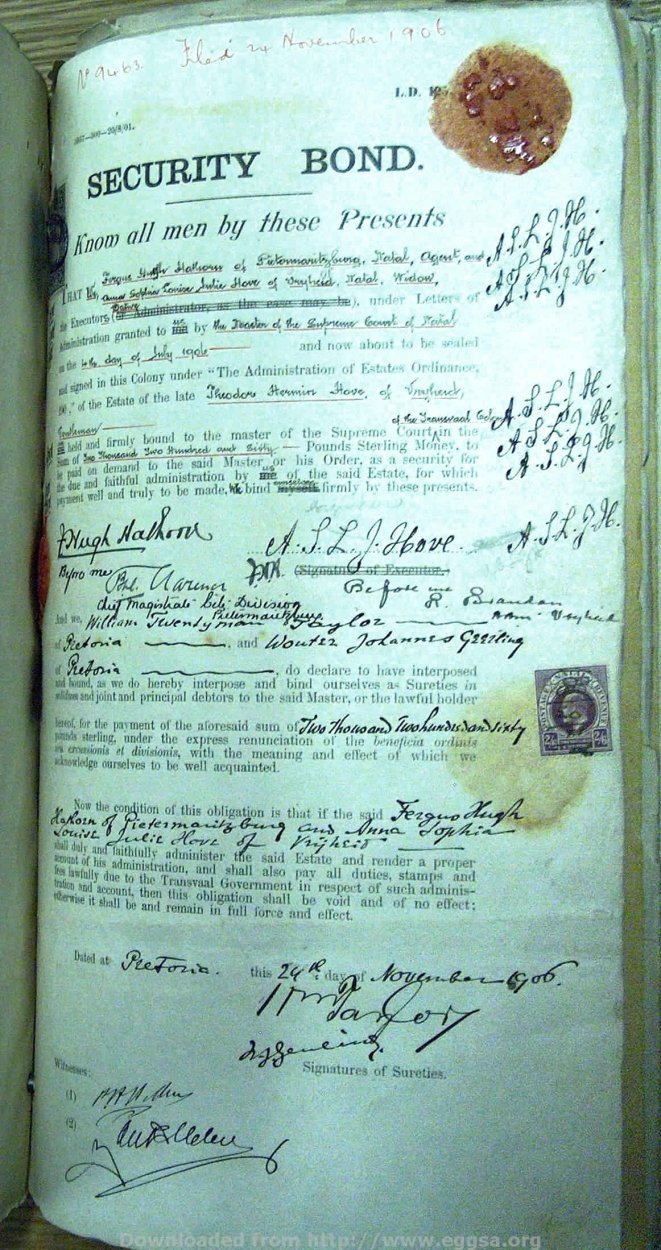 No 9463. Filed 24 November 1906
L.D.
SECURITY BOND.
Know all men by these Presents
THAT We, Fergus Hugh Hathorn of Pietermaritzburg, Natal, Agent, and A.S.L.J.H.
Anna Sophia Louise Julie Hove of Vryheid, Natal, Widow, A.S.L.J.H.
the Executors Dative (or Administrator, as the case may be), under Letters of A.S.L.J.H.
Administration granted to us by the Master of the Supreme Court of Natal
on the 4th day of July 1906 and now about to be sealed
and signed in this Colony under "The Administration of Estates Ordinance,
190 ," of the Estate of the late Theodore Hermin Hove, of Vryheid,
Gentleman of the Transvaal Colony A.S.L.J.H.
held and firmly bound to the master of the Supreme Court in the A.S.L.J.H.
Sum of Two Thousand Two Hundred and Sixty Pounds Sterling Money, to A.S.L.J.H.
be paid on demand to the said Master, or his Order, as security for
the due and faithful administration by us of the said Estate, for which
payment well and truly to be made, We bind ourselves firmly by these presents.
F Hugh Hathorn A.S.L.J. Hove A.S.L.J.H.
(Signature of Executor.)
Before me
Chief Magistrate City Division
Pietermaritzburg Vryheid
And we, William Twentyman Taylor
of Pretoria, and Wouter Johannes Geerling
of Pretoria, do declare to have interposed
and bound, as we do hereby interpose and bind ourselves as Sureties in
solidum and joint and principal debtors to the said Master, or the lawful holder
hereof, for the payment of the aforesaid sum of Two Thousand Two hundred and sixty
pounds sterling, under the express renunciation of the beneficia ordinis
seu excussionis et divisionis, with the meaning and effect of which we
acknowledge ourselves to be well acquainted.
Now the condition of this obligation is that if the said Fergus Hugh
Hathorn of Pietermaritzburg and Anna Sophia
Louise Julie Hove of Vryheid
shall duly and faithfully administer the said Estate and render a proper
account of his administration, and shall also pay all duties, stamps and
fees lawfully due to the Transvaal Government in respect of such adminis-
tration and account, then this obligation shall be void and of no effect;
otherwise it shall be and remain in full force and effect.
Dated at Pretoria. this 24th day of November 1906.
Signatures of Sureties.
Witnesses:
(1)
(2)
Downloaded from http://www.eggsa.org